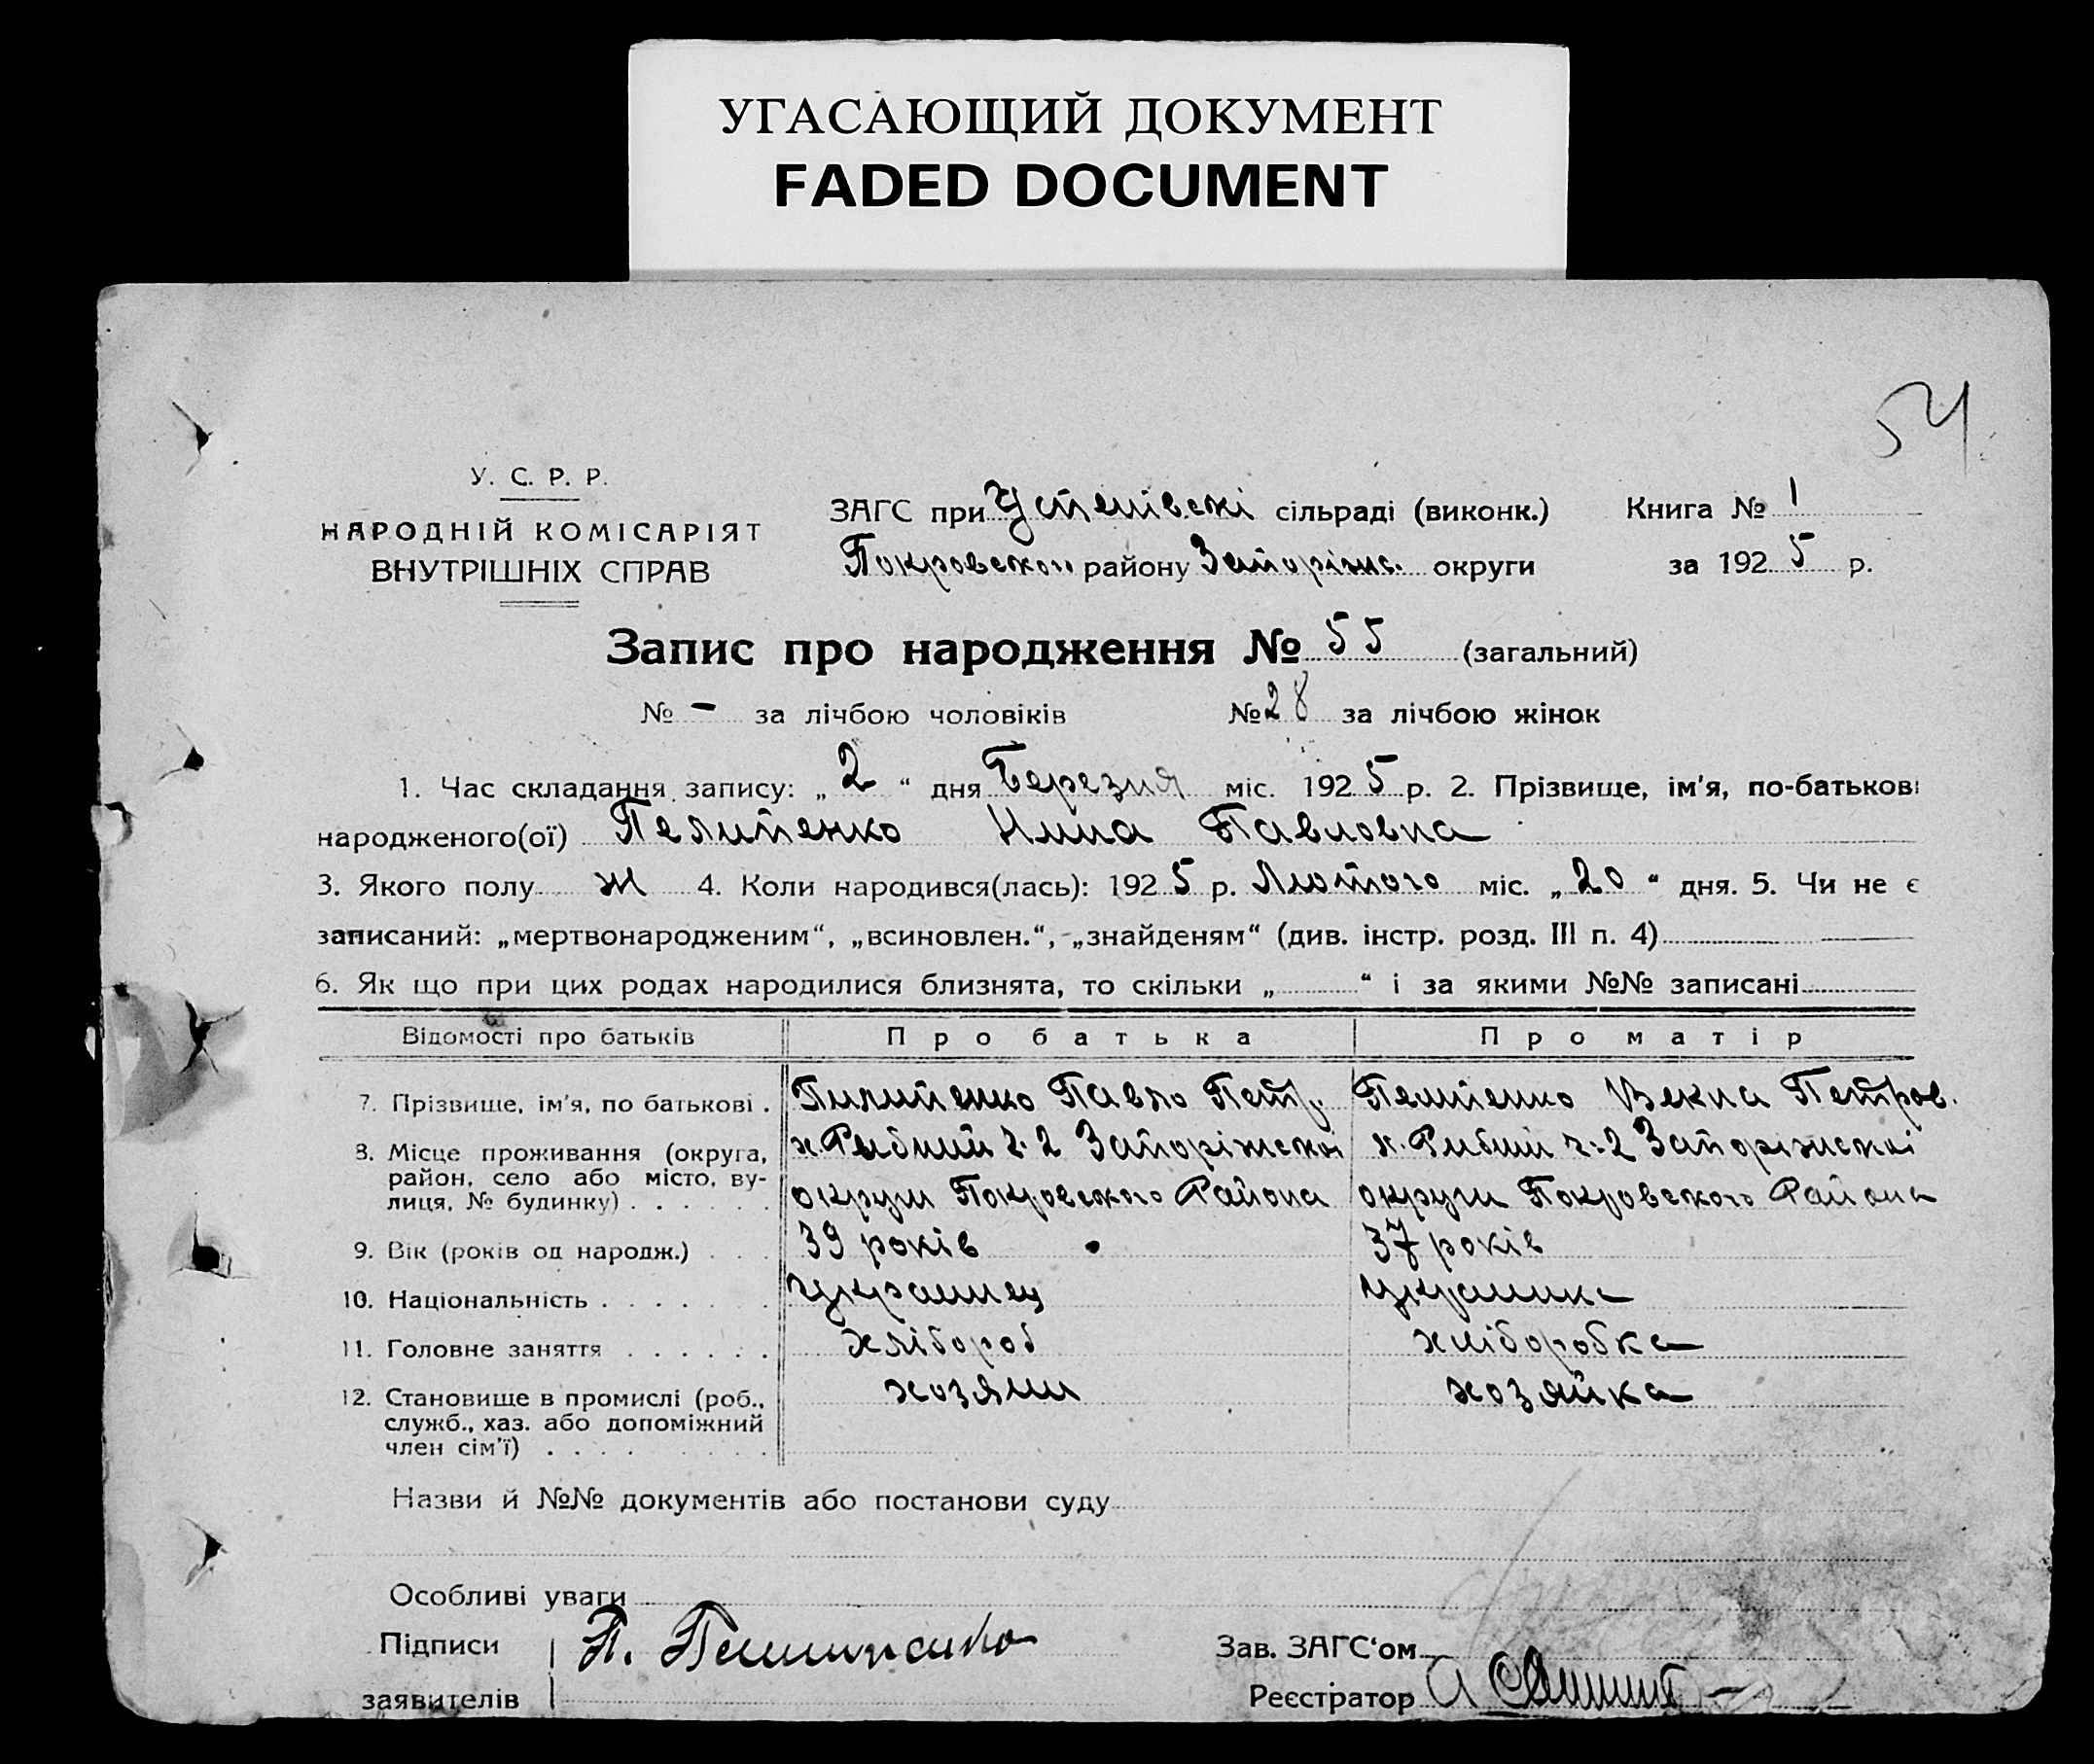 УГАСАЮЩИЙ ДОКУМЕНТ
FADED DOCUMENT
54
У. С. Р. Р.
НАРОДНІЙ КОМІСАРІЯТ
ВНУТРІШНІХ СПРАВ
ЗАГС при сільраді (виконк.)
Покровского району Запоріжс. округи
Книга № 1
за 1925 р.
Запис про народження № 55 (загальний)
№ - за лічбою чоловіків № 28 за лічбою жінок
1. Час складання запису: „ 2 “ дня Березня міс. 1925 р. 2. Прізвище, ім'я, по-батькові
народженого(ої) Пелипенко Нина Павловна
3. Якого полу ж 4. Коли народився(лась): 1925 р. Лютого міс. „ 20 “ дня. 5. Чи не є
записаний: „мертвонародженим“, „всиновлен.“, „знайденям“ (див. інстр. розд. III п. 4)
6. Як що при цих родах народилися близнята, то скільки „ “ і за якими №№ записані
Відомості про батьків Про батька Про матір
7. Прізвище, ім'я, по батькові . Пилипенко Павло Петр. Пелипенко Петров.
8. Місце проживання (округа, х. Рибний ч. 2 Запоріжскоі х. Рибний ч. 2 Запоріжскоі
район, село або місто, ву-
лиця, № будинку) . . . . . . округи Покровского Района округи Покровского Района
9. Вік (років од народж.) . . . 39 років 37 років
10. Національність . . . . . . . украинец украинка
11. Головне заняття . . . . . . хлібороб хліборобка
12. Становище в промислі (роб., хозяин хозяйка
служб., хаз. або допоміжний
член сім'ї) . . . . . . . . .
Назви й №№ документів або постанови суду
Особливі уваги
Підписи П. Пелипенко Зав. ЗАГС'ом
заявителів Реєстратор